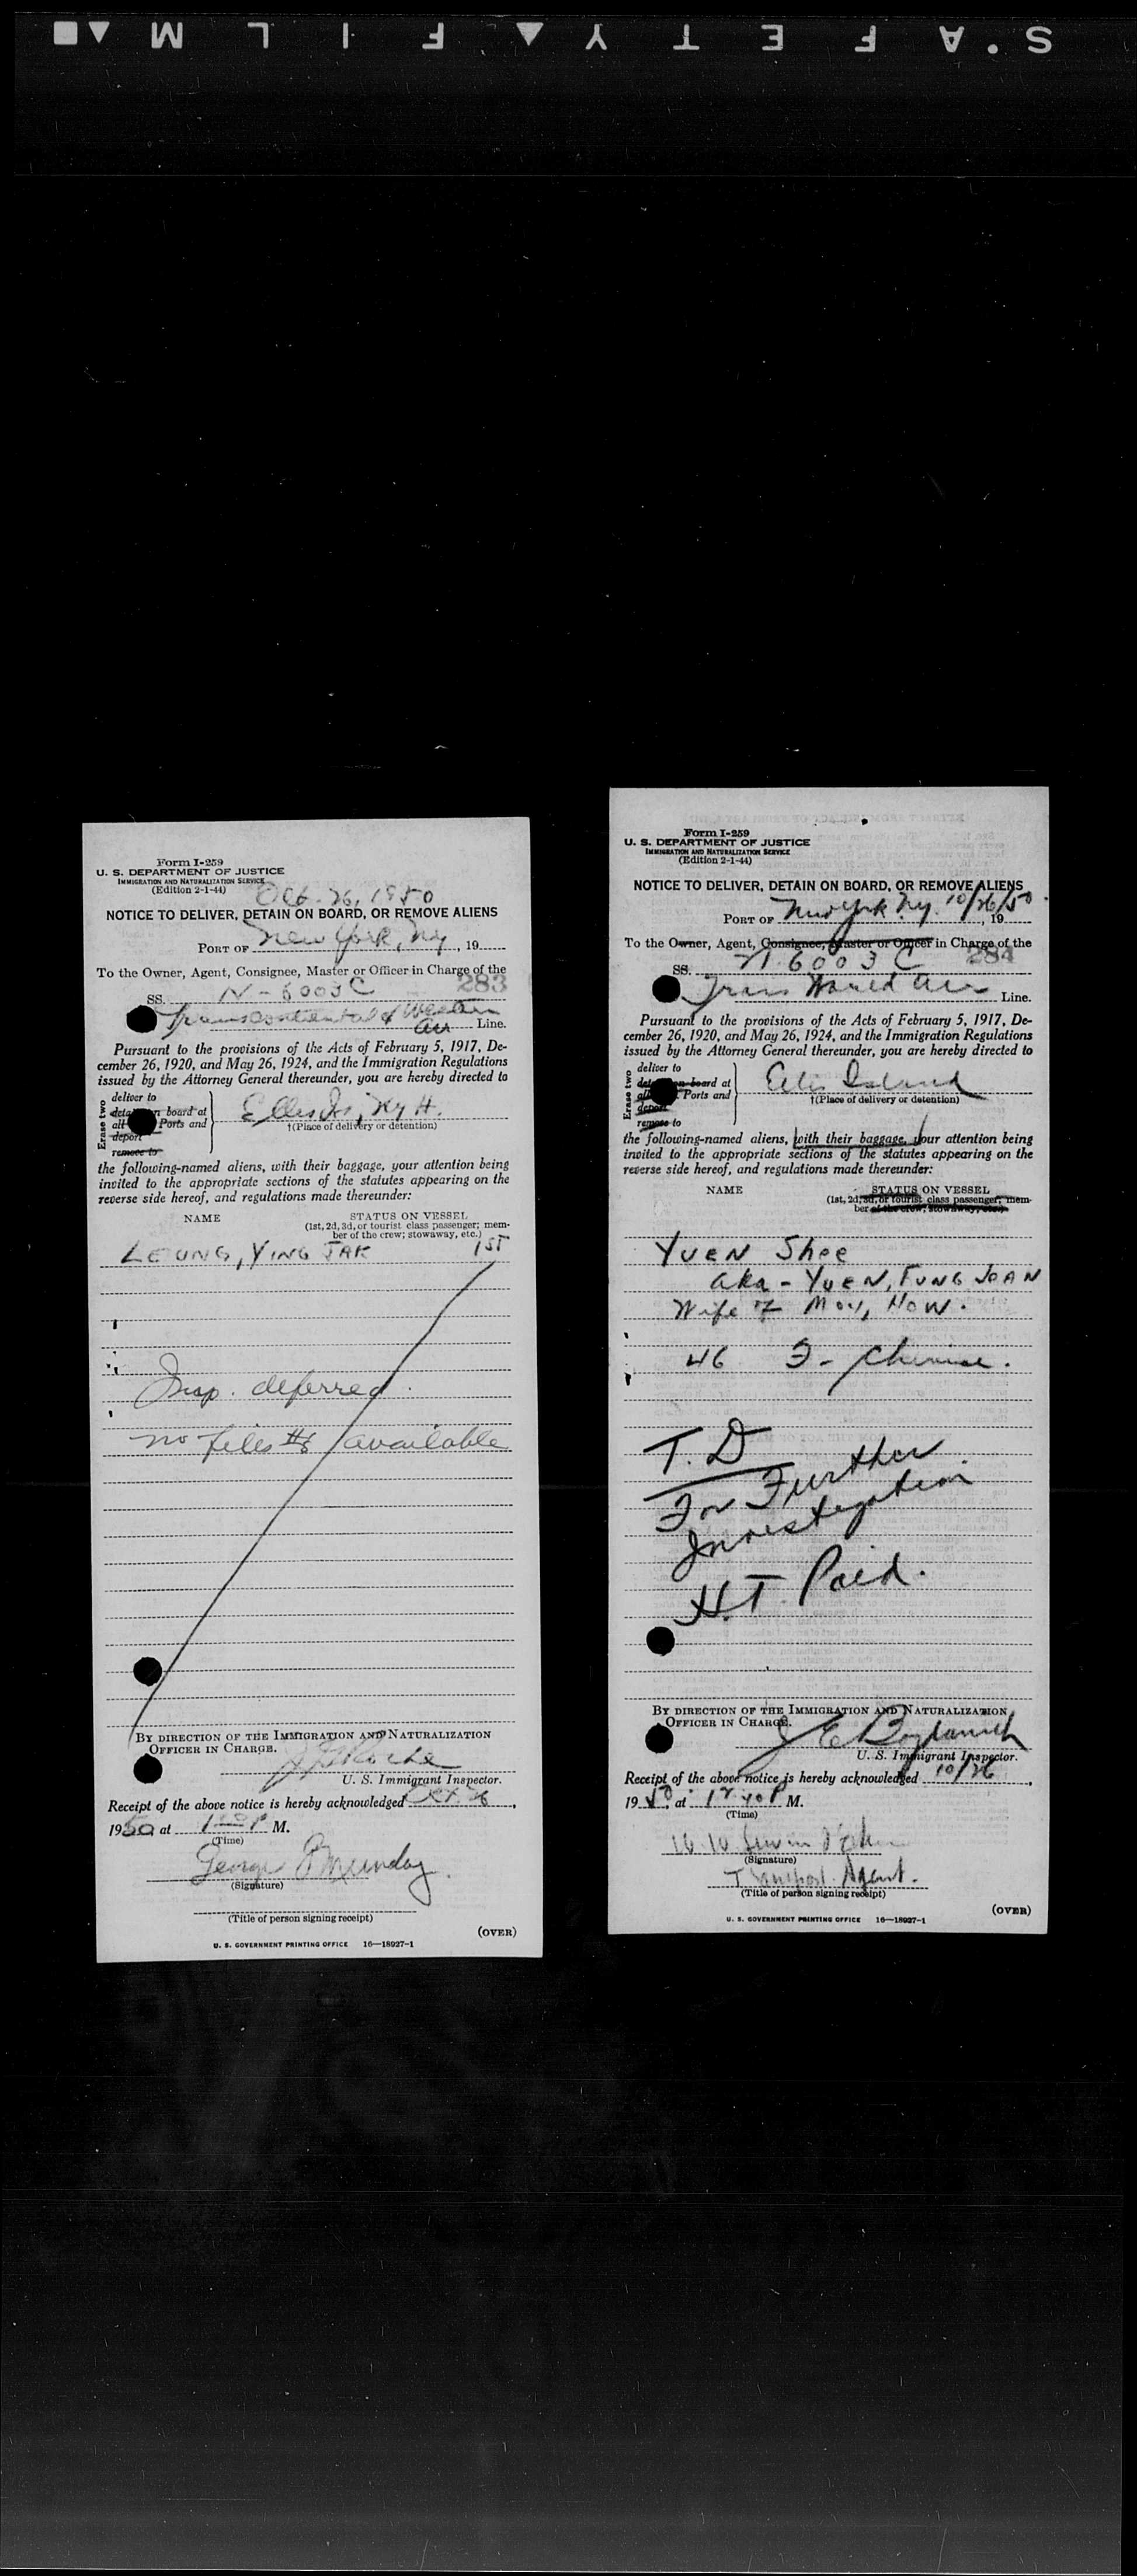 SAFETY FILM
Form I-259
U. S. DEPARTMENT OF JUSTICE
IMMIGRATION AND NATURALIZATION SERVICE
(Edition 2-1-44)
Oct. 26, 1950
NOTICE TO DELIVER, DETAIN ON BOARD, OR REMOVE ALIENS
PORT OF New York, Ny, 19
To the Owner, Agent, Consignee, Master or Officer in Charge of the
283
SS. N-6003C
Transcontinental & Western
Air Line.
Pursuant to the provisions of the Acts of February 5, 1917, De-
cember 26, 1920, and May 26, 1924, and the Immigration Regulations
issued by the Attorney General thereunder, you are hereby directed to
Erase two
deliver to
board at
Ports and
deport
remove to
Ellis Is, Ny H.
†(Place of delivery or detention)
the following-named aliens, with their baggage, your attention being
invited to the appropriate sections of the statutes appearing on the
reverse side hereof, and regulations made thereunder:
NAME STATUS ON VESSEL
(1st, 2d, 3d, or tourist class passenger; mem-
ber of the crew; stowaway, etc.)
LEUNG, YING JAK 1ST
Insp. deferred.
no files #s available
BY DIRECTION OF THE IMMIGRATION AND NATURALIZATION
OFFICER IN CHARGE.
Roche
U. S. Immigrant Inspector.
Receipt of the above notice is hereby acknowledged Oct 26,
1950 at 1 00 P M.
(Time)
George Munday
(Signature)
(Title of person signing receipt)
(OVER)
U. S. GOVERNMENT PRINTING OFFICE 16—18927-1
Form I-259
U. S. DEPARTMENT OF JUSTICE
IMMIGRATION AND NATURALIZATION SERVICE
(Edition 2-1-44)
NOTICE TO DELIVER, DETAIN ON BOARD, OR REMOVE ALIENS
PORT OF New York. Ny. 10/26/50, 19
To the Owner, Agent, Consignee, Master or Officer in Charge of the
284
SS. N. 6003C
Trans World Air Line.
Pursuant to the provisions of the Acts of February 5, 1917, De-
cember 26, 1920, and May 26, 1924, and the Immigration Regulations
issued by the Attorney General thereunder, you are hereby directed to
Erase two
deliver to
board at
Ports and
deport
remove to
Ellis Island
†(Place of delivery or detention)
the following-named aliens, with their baggage, your attention being
invited to the appropriate sections of the statutes appearing on the
reverse side hereof, and regulations made thereunder:
NAME STATUS ON VESSEL
(1st, 2d, 3d, or tourist class passenger; mem-
ber of the crew, stowaway, etc.)
YUEN Shee
aka - YUEN, FUNG JOAN
Wife of Moy, HOW.
46 F - Chinese.
T. D
For Further
Investigation
H.T. Paid.
BY DIRECTION OF THE IMMIGRATION AND NATURALIZATION
OFFICER IN CHARGE.
J E
U. S. Immigrant Inspector.
Receipt of the above notice is hereby acknowledged 10/26,
1950, at 12 40 P M.
(Time)
(Signature)
Transport. Agent.
(Title of person signing receipt)
(OVER)
U. S. GOVERNMENT PRINTING OFFICE 16—18927-1